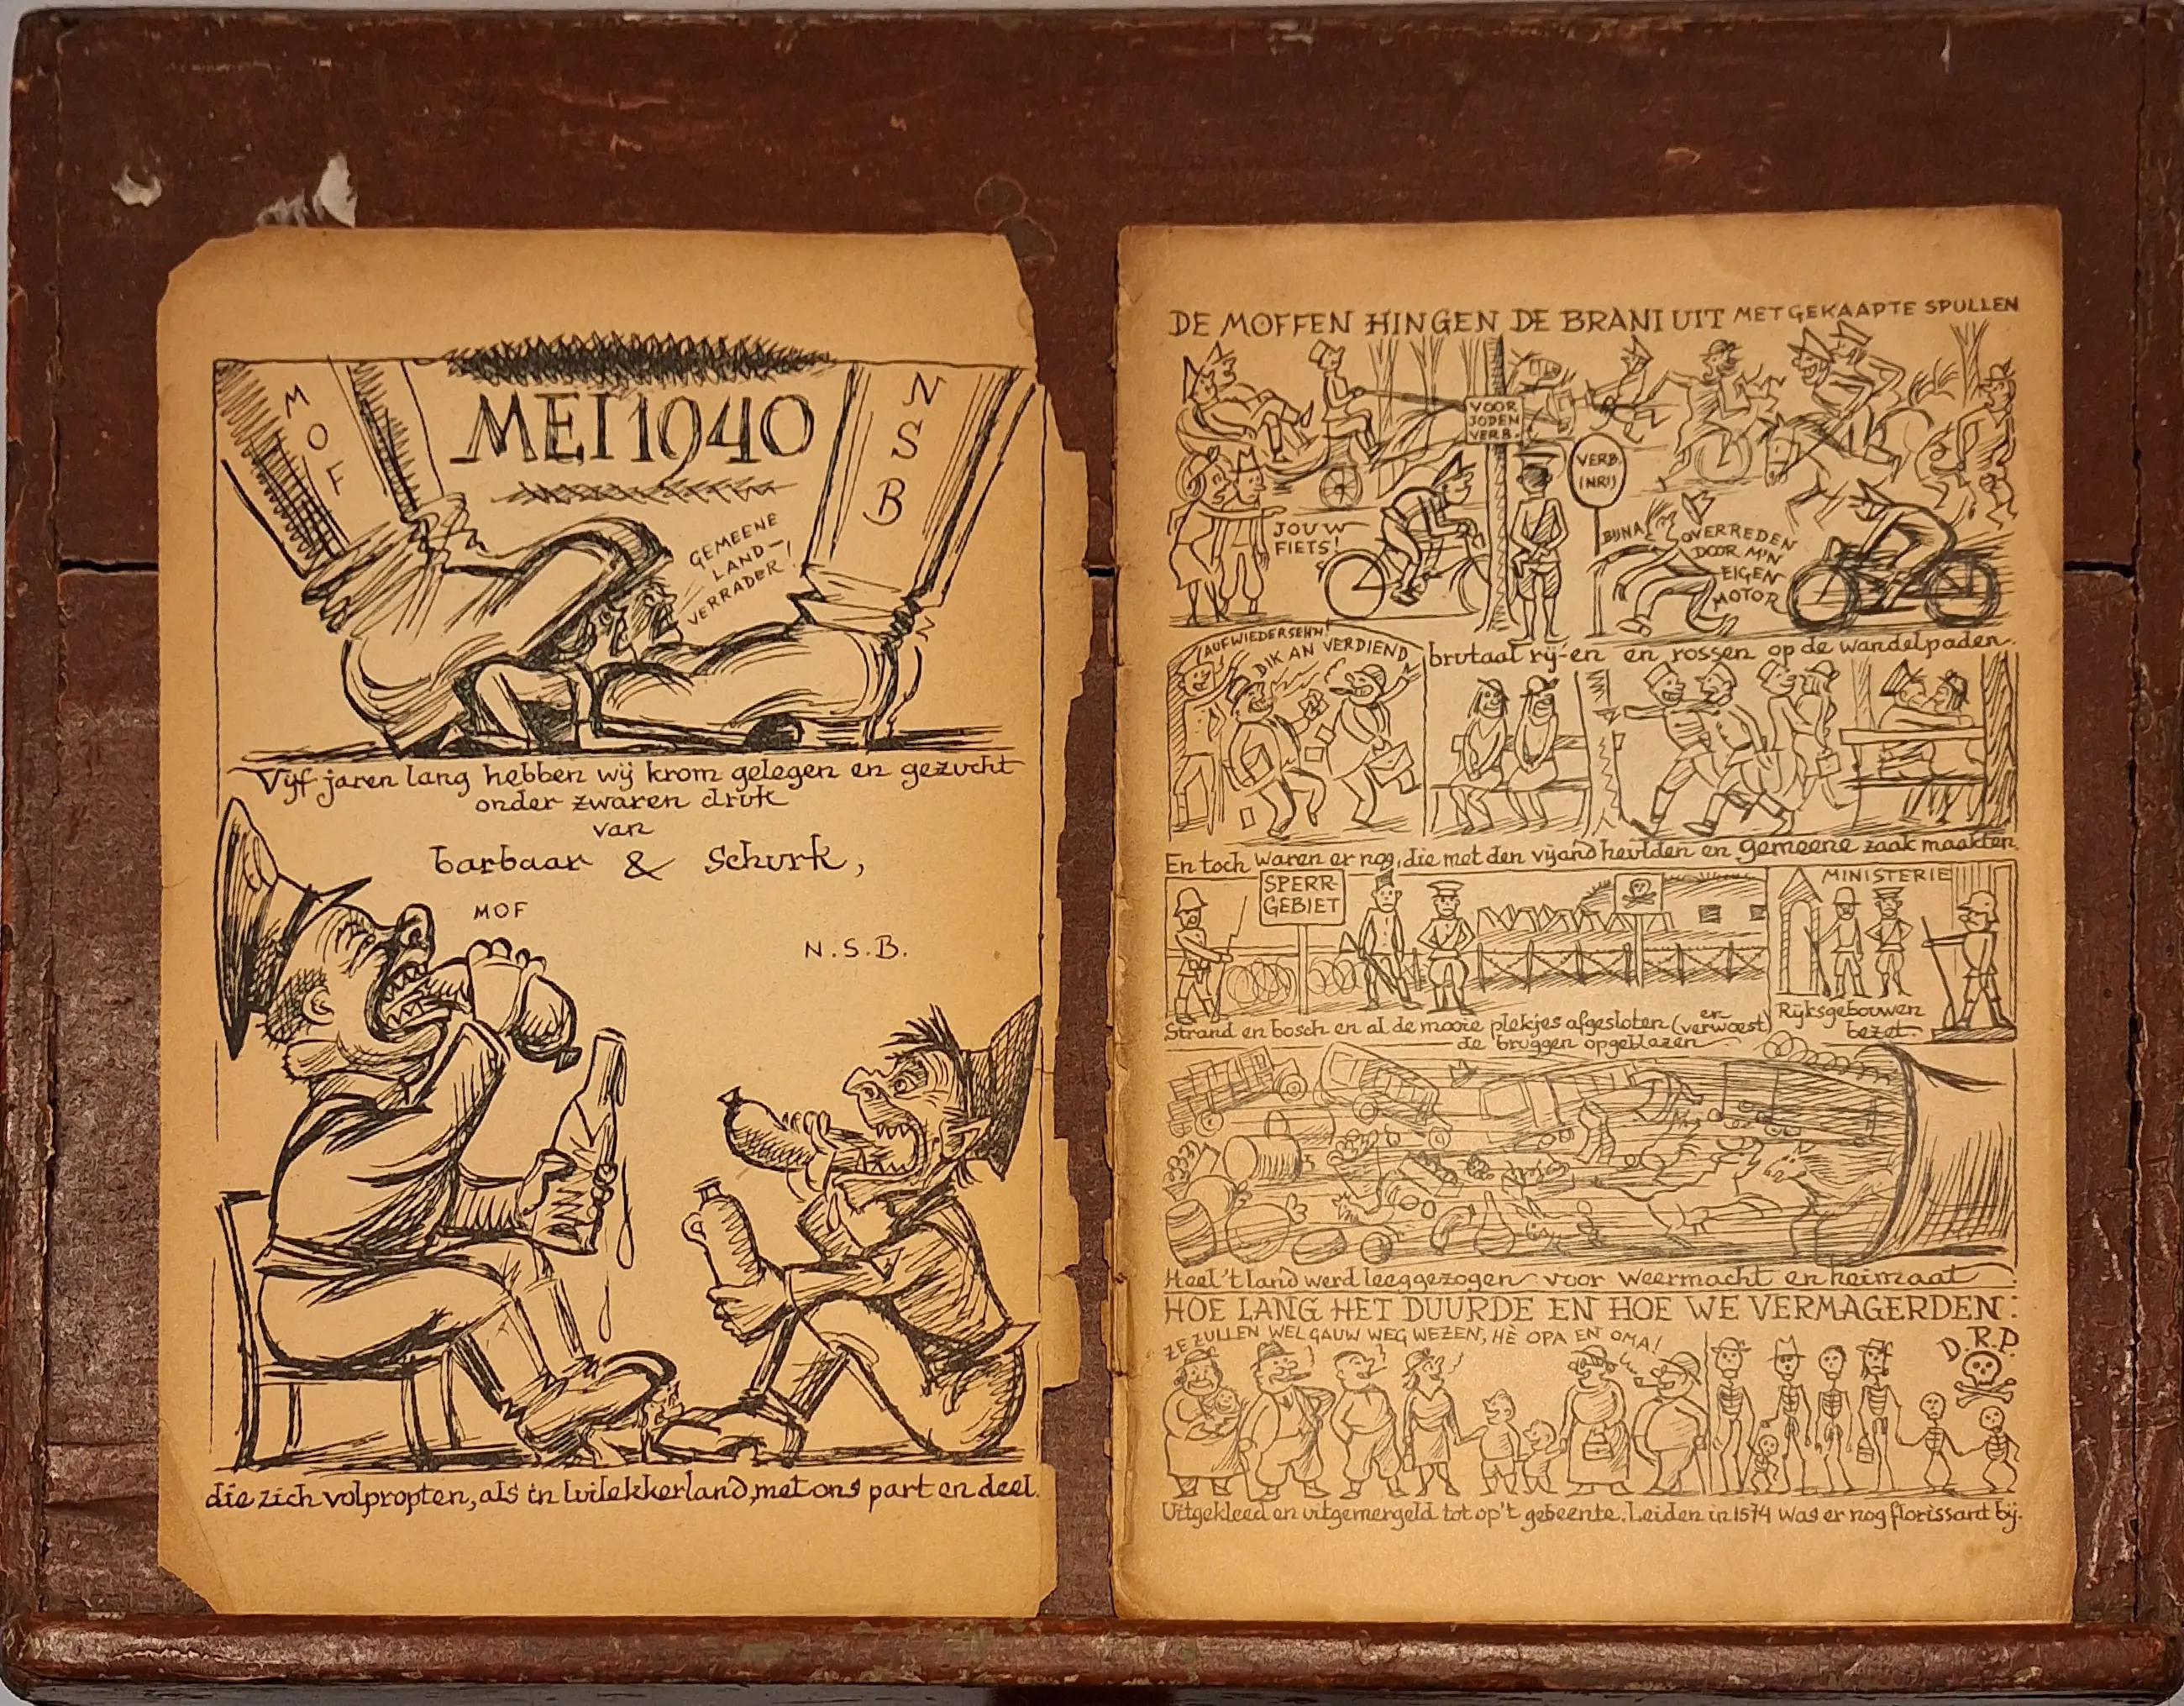 MOF
MEI 1940
NSB
GEMEENE
LAND-
VERRADER!
Vijf jaren lang hebben wij krom gelegen en gezucht
onder zwaren druk
van
barbaar & Schurk,
MOF
N.S.B.
die zich volpropten, als in luilekkerland, met ons part en deel.
DE MOFFEN HINGEN DE BRANI UIT MET GEKAAPTE SPULLEN
VOOR
JODEN
VERB.
VERB.
INRIJ
JOUW
FIETS!
BIJNA OVERREDEN
DOOR M'N
EIGEN
MOTOR
brutaal rij-en en rossen op de wandelpaden.
AUFWIEDERSEHN!
DIK AN VERDIEND
En toch waren er nog, die met den vijand heulden en gemeene zaak maakten.
SPERR-
GEBIET
MINISTERIE
Strand en bosch en al de mooie plekjes afgesloten (en verwoest)
Rijksgebouwen
bezet.
de bruggen opgeblazen
Heel 't land werd leeggezogen voor weermacht en heimaat
HOE LANG HET DUURDE EN HOE WE VERMAGERDEN:
ZE ZULLEN WEL GAUW WEG WEZEN, HÈ OPA EN OMA!
D.R.P.
Uitgekleed en uitgemergeld tot op 't gebeente. Leiden in 1574 was er nog florissant bij.